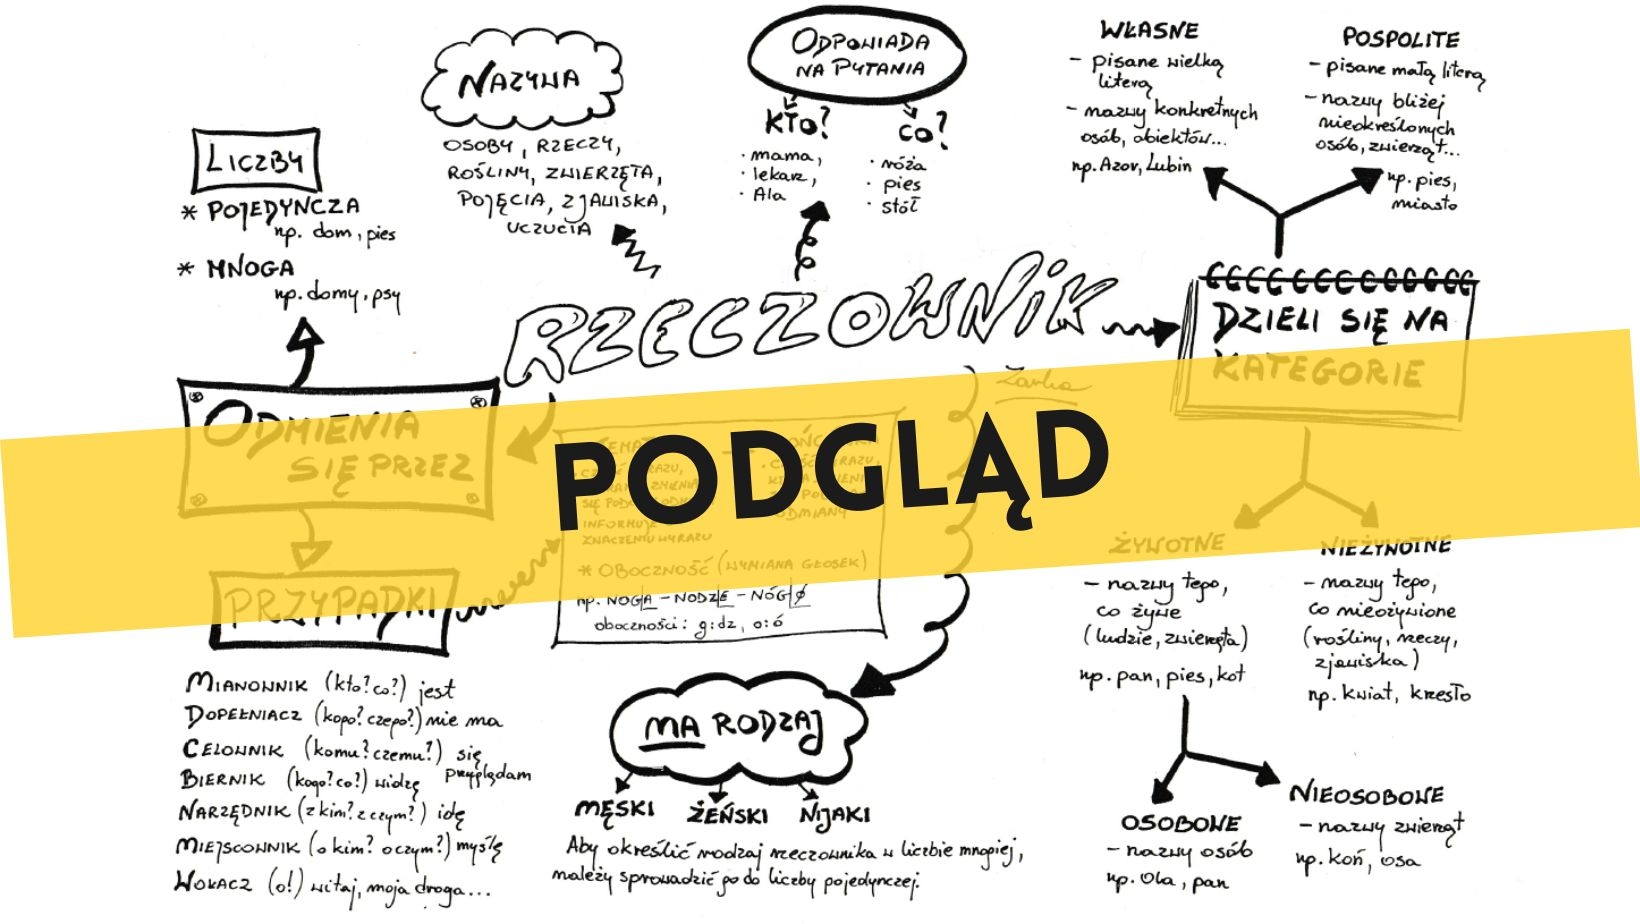 NAZYWA
OSOBY, RZECZY,
ROŚLINY, ZWIERZĘTA,
POJĘCIA, ZJAWISKA,
UCZUCIA
ODPOWIADA
NA PYTANIA
KTO?
· mama,
· lekarz,
· Ala
CO?
· róża
· pies
· stół
WŁASNE
- pisane wielką
literą
- nazwy konkretnych
osób, obiektów...
np. Azor, Lubin
POSPOLITE
- pisane małą literą
- nazwy bliżej
nieokreślonych
osób, zwierząt...
np. pies,
miasto
LICZBY
* POJEDYNCZA
np. dom, pies
* MNOGA
np. domy, psy
RZECZOWNIK
DZIELI SIĘ NA
KATEGORIE
ODMIENIA
SIĘ PRZEZ
PODGLĄD
INFORMUJE
ZNACZENIU WYRAZU
ODMIANY
* OBOCZNOŚĆ (WYMIANA GŁOSEK)
np. NOG|A - NODZ|E - NÓG|Ø
oboczności: g:dz, o:ó
PRZYPADKI
MIANOWNIK (kto? co?) jest
DOPEŁNIACZ (kogo? czego?) nie ma
CELOWNIK (komu? czemu?) się
przyglądam
BIERNIK (kogo? co?) widzę
NARZĘDNIK (z kim? z czym?) idę
MIEJSCOWNIK (o kim? o czym?) myślę
WOŁACZ (o!) witaj, moja droga...
MA RODZAJ
MĘSKI
ŻEŃSKI
NIJAKI
Aby określić rodzaj rzeczownika w liczbie mnogiej,
należy sprowadzić go do liczby pojedynczej.
ŻYWOTNE
- nazwy tego,
co żywe
(ludzie, zwierzęta)
np. pan, pies, kot
NIEŻYWOTNE
- nazwy tego,
co nieożywione
(rośliny, rzeczy,
zjawiska)
np. kwiat, krzesło
OSOBOWE
- nazwy osób
np. Ola, pan
NIEOSOBOWE
- nazwy zwierząt
np. koń, osa